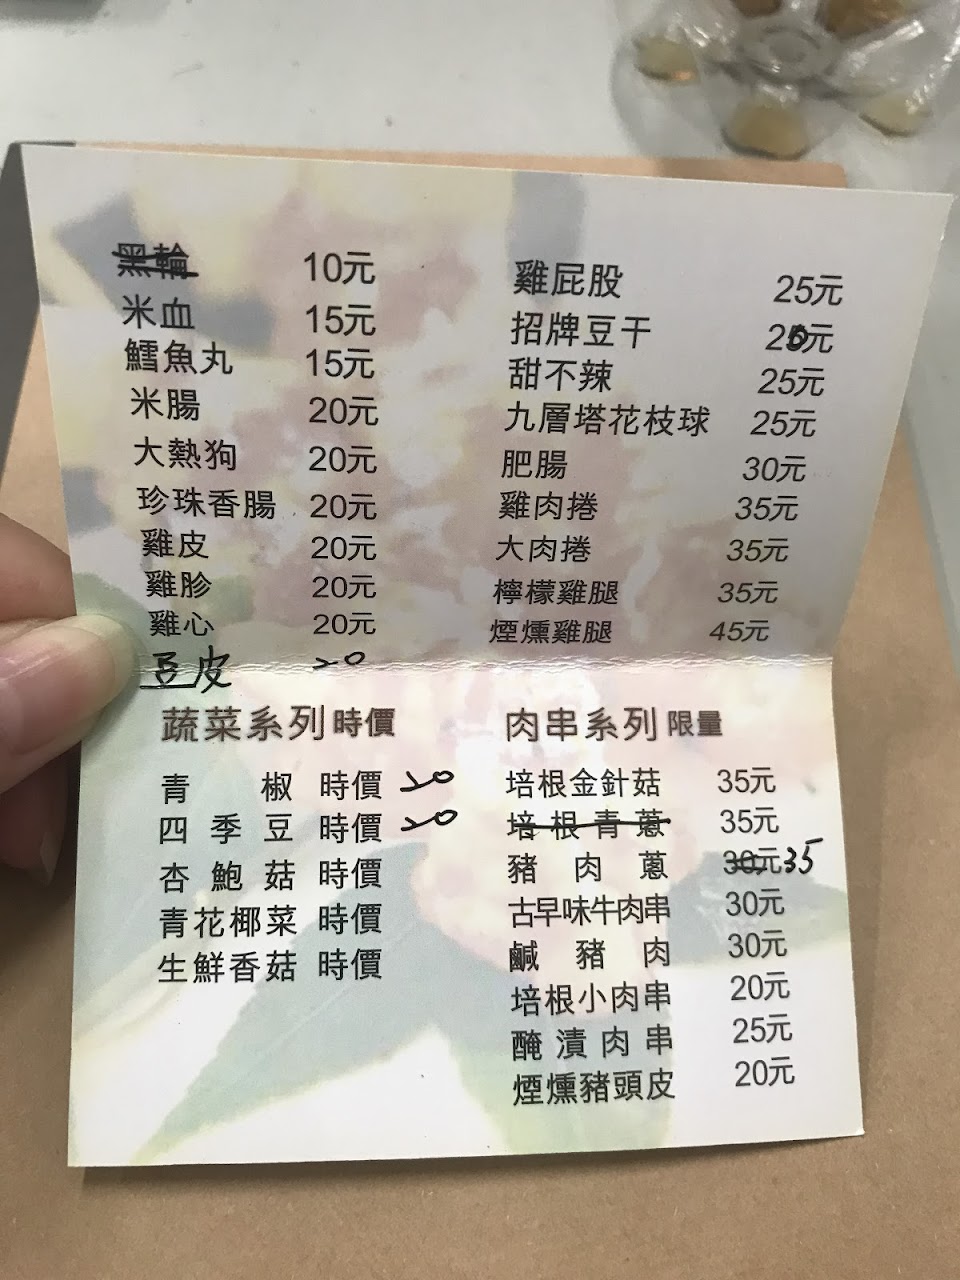 黑輪 10元
米血 15元
鱈魚丸 15元
米腸 20元
大熱狗 20元
珍珠香腸 20元
雞皮 20元
雞胗 20元
雞心 20元
豆皮 20
雞屁股 25元
招牌豆干 20元
甜不辣 25元
九層塔花枝球 25元
肥腸 30元
雞肉捲 35元
大肉捲 35元
檸檬雞腿 35元
煙燻雞腿 45元
蔬菜系列 時價
青椒 時價 20
四季豆 時價 20
杏鮑菇 時價
青花椰菜 時價
生鮮香菇 時價
肉串系列 限量
培根金針菇 35元
培根青蔥 35元
豬肉蔥 30元 35
古早味牛肉串 30元
鹹豬肉 30元
培根小肉串 20元
醃漬肉串 25元
煙燻豬頭皮 20元